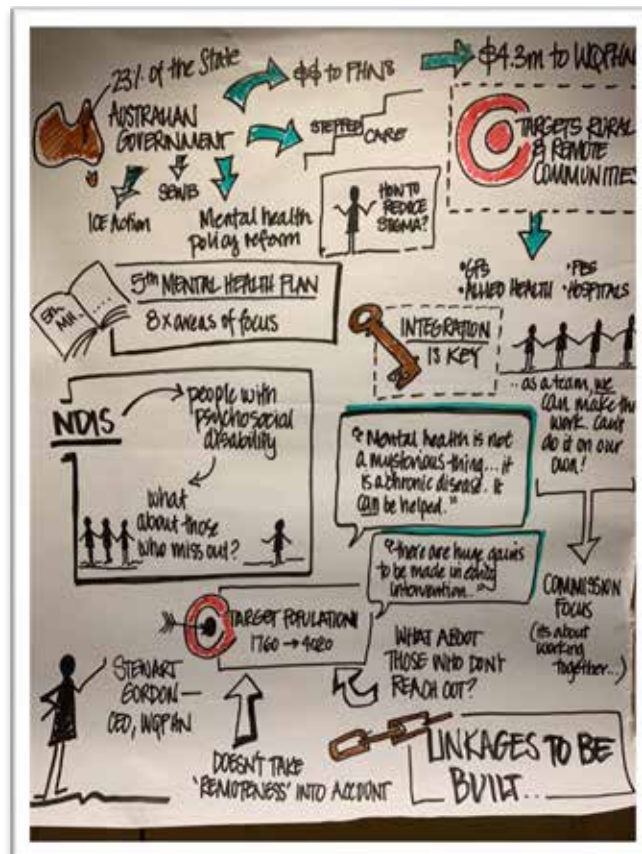 23% of the State
AUSTRALIAN
GOVERNMENT
$$ to PHNs
$4.3m to WQPHN
STEPPED
CARE
TARGETS RURAL
& REMOTE
COMMUNITIES
ICE Action
SEWB
Mental health
policy reform
HOW TO
REDUCE
STIGMA?
5th MENTAL HEALTH PLAN
8x areas of focus
5th
MH...
• GPs
• ALLIED HEALTH
• PBS
• HOSPITALS
INTEGRATION
IS KEY
.. as a team, we
can make this
work. Can't
do it on our
own!
NDIS
people with
psychosocial
disability
what
about those
who miss out?
"Mental health is not
a mysterious thing... it
is a chronic disease. It
can be helped."
"there are huge gains
to be made in early
intervention.."
COMMISSION
FOCUS
(its about
working
together...)
TARGET POPULATION
1760 → 4020
WHAT ABOUT
THOSE WHO DON'T
REACH OUT?
STEWART
GORDON —
CEO, WQPHN
DOESN'T TAKE
'REMOTENESS' INTO ACCOUNT
LINKAGES TO BE
BUILT...